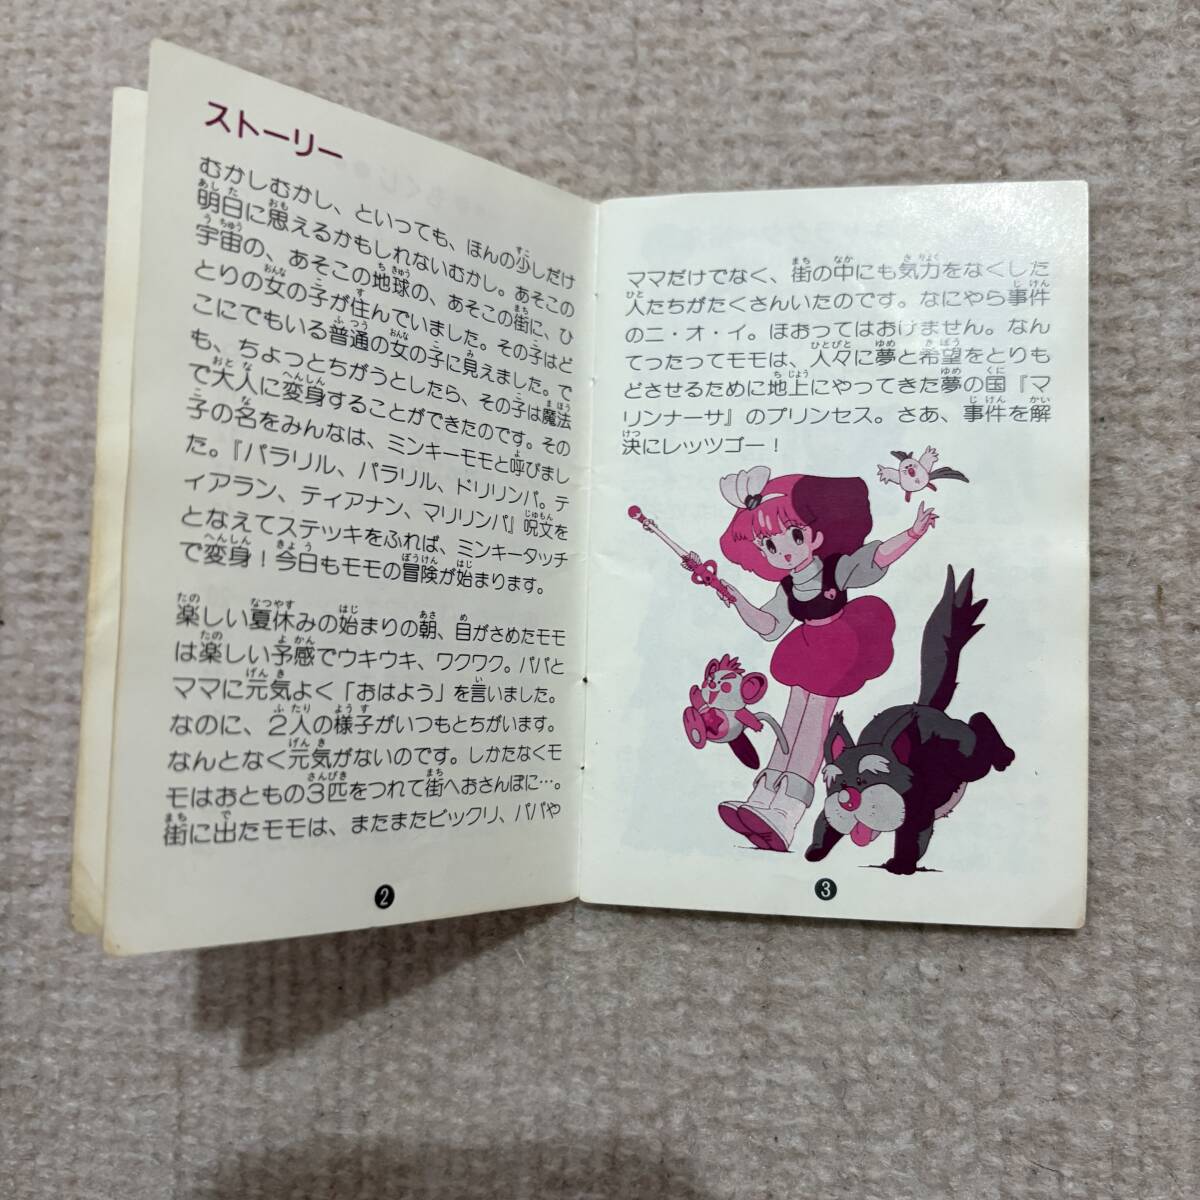 ストーリー
むかしむかし、といっても、ほんの少しだけ
明日に思えるかもしれないむかし。あそこの
宇宙の、あそこの地球の、あそこの街に、ひ
とりの女の子が住んでいました。その子はど
こにでもいる普通の女の子に見えました。で
も、ちょっとちがうとしたら、その子は魔法
で大人に変身することができたのです。その
子の名をみんなは、ミンキーモモと呼びまし
た。『パラリル、パラリル、ドリリンパ。テ
ィアラン、ティアナン、マリリンパ』呪文を
となえてステッキをふれば、ミンキータッチ
で変身！今日もモモの冒険が始まります。
楽しい夏休みの始まりの朝、目がさめたモモ
は楽しい予感でウキウキ、ワクワク。パパと
ママに元気よく「おはよう」を言いました。
なのに、2人の様子がいつもとちがいます。
なんとなく元気がないのです。しかたなくモ
モはおともの3匹をつれて街へおさんぽに…。
街に出たモモは、またまたビックリ、パパや
2
ママだけでなく、街の中にも気力をなくした
人たちがたくさんいたのです。なにやら事件
のニ・オ・イ。ほおってはおけません。なん
てったってモモは、人々に夢と希望をとりも
どさせるために地上にやってきた夢の国『マ
リンナーサ』のプリンセス。さあ、事件を解
決にレッツゴー！
3